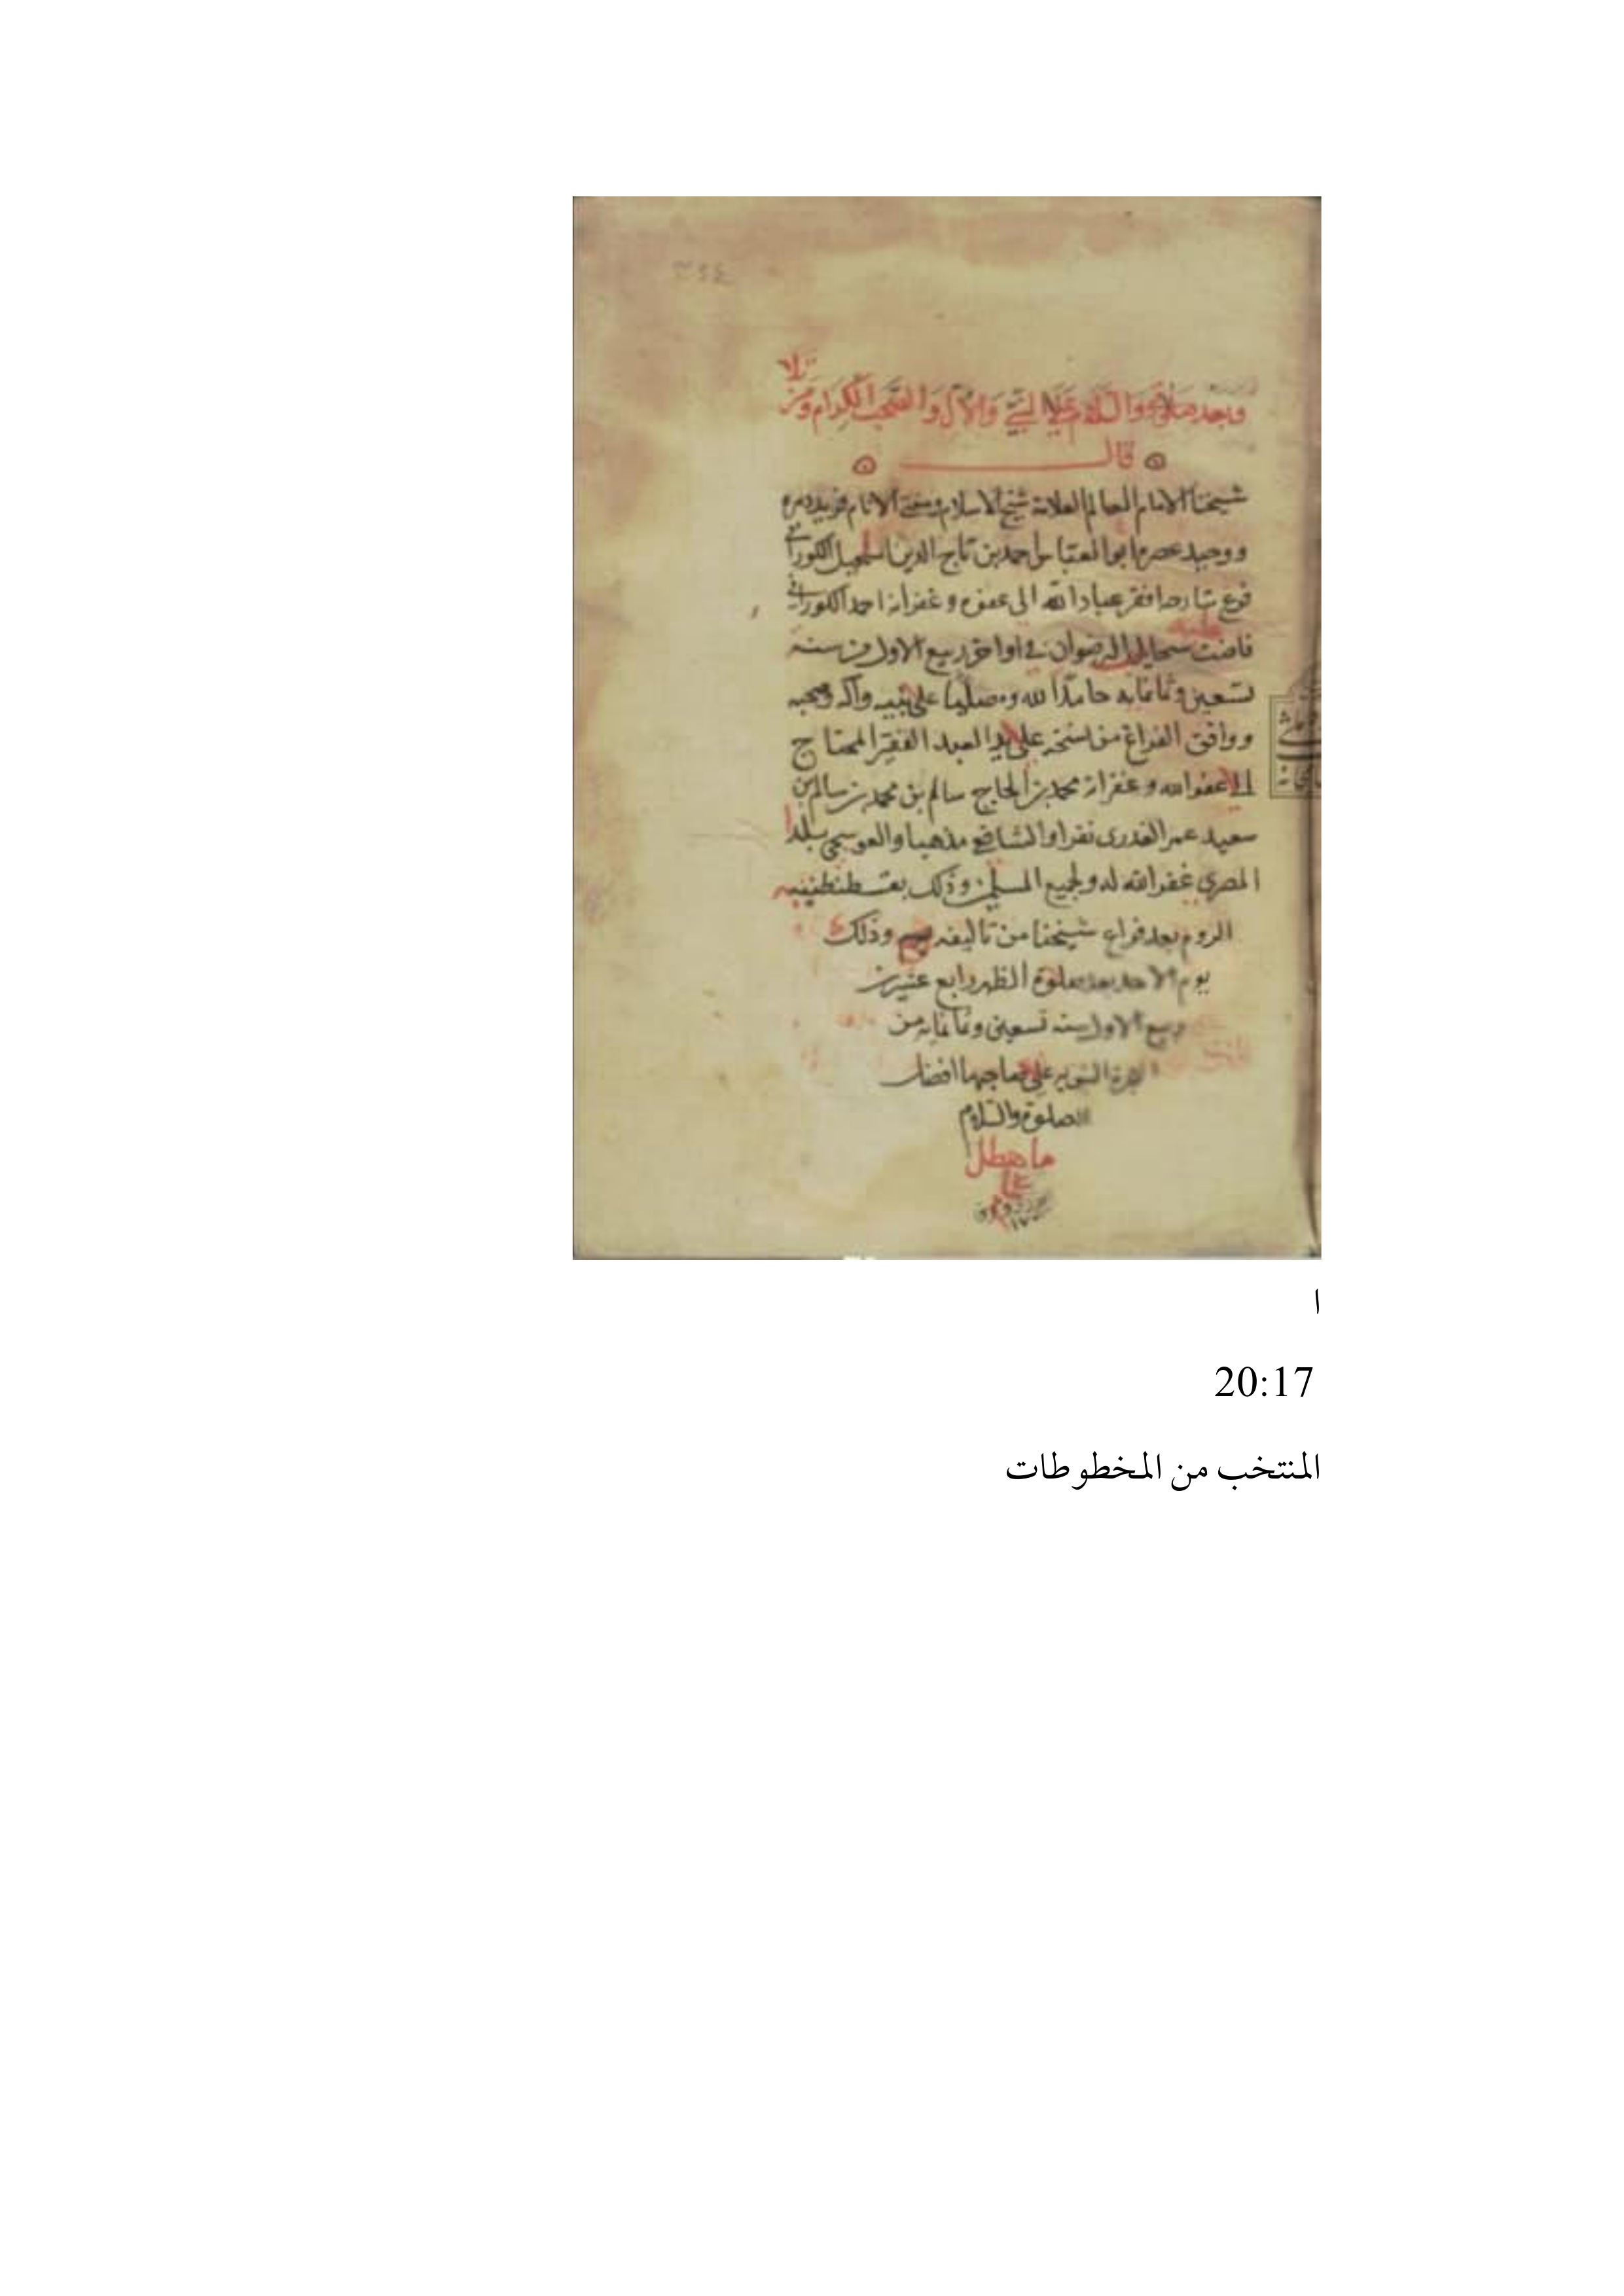 ٣٤٤
وبعد صلاة والسلام علي النبي والآل والصحب الكرام ومن تلا
قال
شيخنا الامام العالم العلامة شيخ الاسلام ومفتي الانام فريد دهره
ووحيد عصره ابو العباس احمد بن تاج الدين اسمعيل الكوراني
فرغ شارحه افقر عباد الله الى عفوه وغفرانه احمد الكوراني
فاضت عليه سحايب الرضوان في اواخر ربيع الاول من سنة
تسعين وثمانمايه حامدا لله ومصليا على نبيه وآله وصحبه
ووافق الفراغ من نسخه على يد العبد الفقير المحتاج
الى عفو الله وغفرانه محمد بن الحاج سالم بن محمد بن سالم بن
سعيد عمر القدرى نفرا والشافعي مذهبا والعوسجي بلدا
المصري غفر الله له ولجميع المسلمين وذلك بقسطنطينيه
الروم بعد فراغ شيخنا من تاليفه وذلك
يوم الاحد بعد صلوة الظهر رابع عشرين
ربيع الاول سنه تسعين وثمانمايه من
الهجرة النبويه على صاحبها افضل
الصلوة والسلام
ا
20:17
المنتخب من المخطوطات